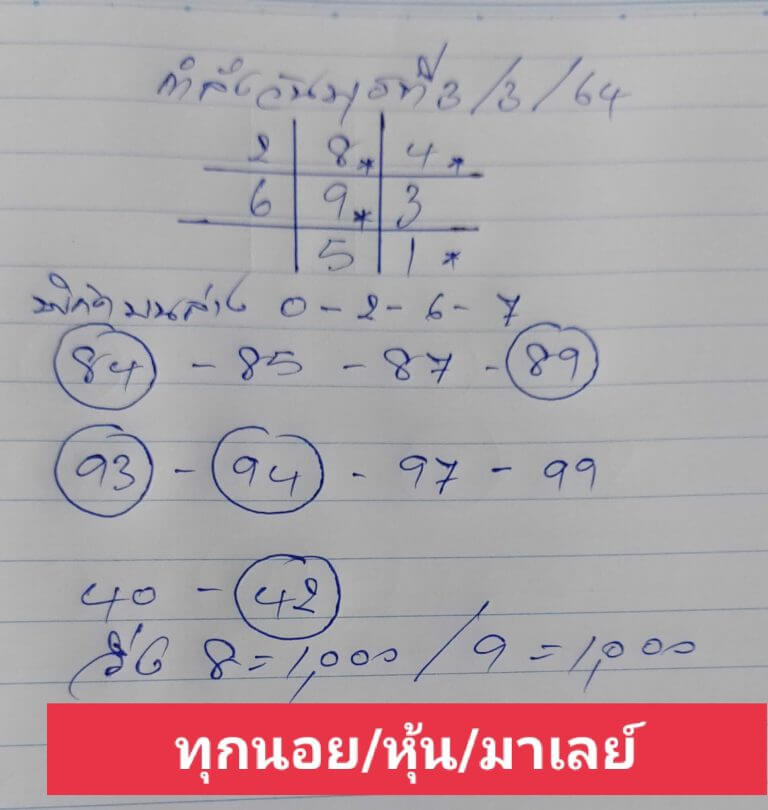 กำลังวันพุธที่ 3/3/64
2 8* 4*
6 9* 3
5 1*
บนล่าง 0-2-6-7
84 - 85 - 87 - 89
93 - 94 - 97 - 99
40 - 42
วิ่ง 8=1,000 / 9=1,000
ทุกนอย/หุ้น/มาเลย์